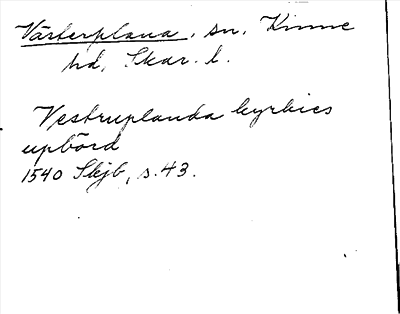 Västerplana, sn, Kinne
hd, Skar. l.
Vestruplanda kyrkies
upbörd
1540 Skjb, s. 43.